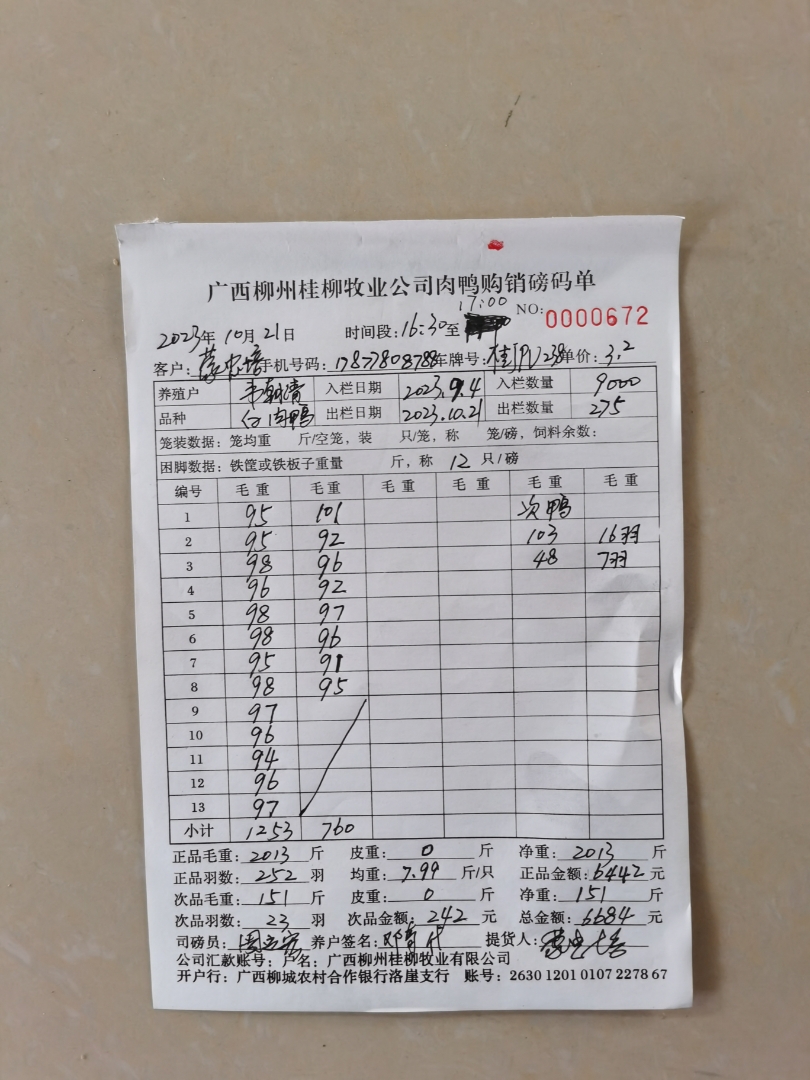 广西柳州桂柳牧业公司肉鸭购销磅码单
2023年10月21日 时间段:16:30至 17:00 NO:0000672
客户: 手机号码:17877808788 车牌号: 单价:3.2
养殖户 韦朝清 入栏日期 2023.9.4 入栏数量 9000
品种 白肉鸭 出栏日期 2023.10.21 出栏数量 275
笼装数据:笼均重 斤/空笼,装 只/笼,称 笼/磅,饲料余数:
困脚数据:铁筐或铁板子重量 斤,称 12 只/磅
编号 毛重 毛重 毛重 毛重 毛重 毛重
1 95 101 次鸭
2 95 92 103 16羽
3 98 96 48 7羽
4 96 92
5 98 97
6 98 96
7 95 91
8 98 95
9 97
10 96
11 94
12 96
13 97
小计 1253 760
正品毛重:2013斤 皮重:0斤 净重:2013斤
正品羽数:252羽 均重:7.99斤/只 正品金额:6442元
次品毛重:151斤 皮重:0斤 净重:151斤
次品羽数:23羽 次品金额:242元 总金额:6684元
司磅员: 养户签名: 提货人:
公司汇款账号:户名:广西柳州桂柳牧业有限公司
开户行:广西柳城农村合作银行洛崖支行 账号:2630 1201 0107 2278 67